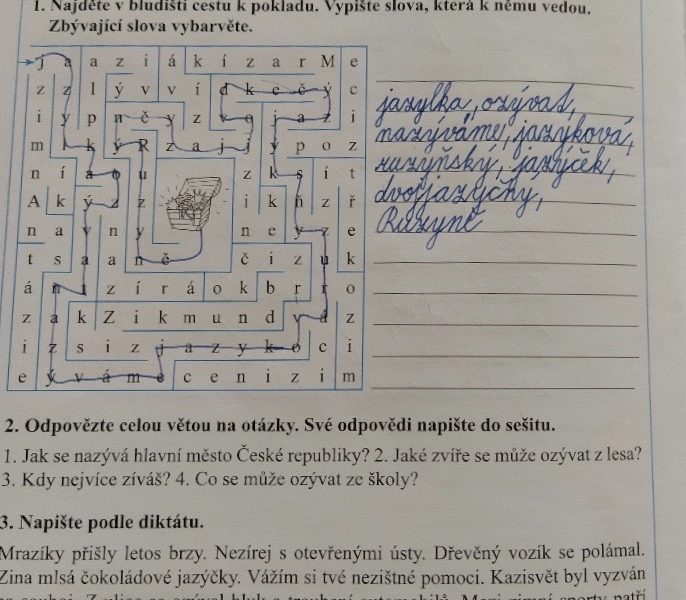 1. Najděte v bludišti cestu k pokladu. Vypište slova, která k němu vedou.
Zbývající slova vybarvěte.
j a a z i á k í z a r M e
z z l ý v v í d k e č ý c
i y p n č y z v o j a z i
m l k ý R z a j j ý p o z
n í a o u z k s í t
A k ý z z i k ň z ř
n a v n y n e y z e
t s a a n ě č i z u k
á n i z í r á o k b r r o
z a k Z i k m u n d v á z
i z s i z j a z y k o c i
e ý v á m e c e n i z i m
jazylka, ozývat,
nazýváme, jazyková,
ruzyňský, jazýček,
dvojjazyčný,
Ruzyně
2. Odpovězte celou větou na otázky. Své odpovědi napište do sešitu.
1. Jak se nazývá hlavní město České republiky? 2. Jaké zvíře se může ozývat z lesa?
3. Kdy nejvíce zíváš? 4. Co se může ozývat ze školy?
3. Napište podle diktátu.
Mrazíky přišly letos brzy. Nezírej s otevřenými ústy. Dřevěný vozík se polámal.
Zina mlsá čokoládové jazýčky. Vážím si tvé nezištné pomoci. Kazisvět byl vyzván